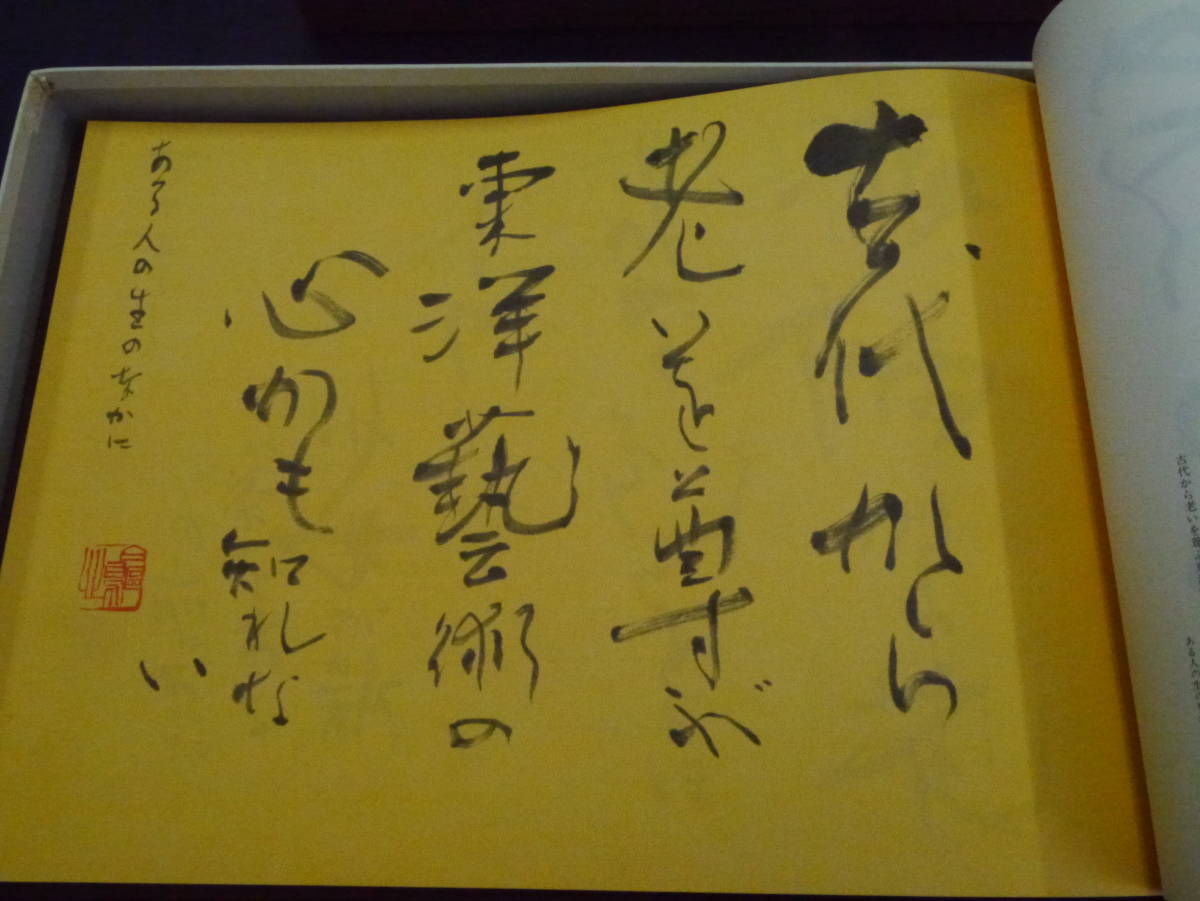 古代から
老いを尊ぶ
東洋藝術の
心かも知れな
い
ある人の生のなかに
古代から老いを尊
ある人の生